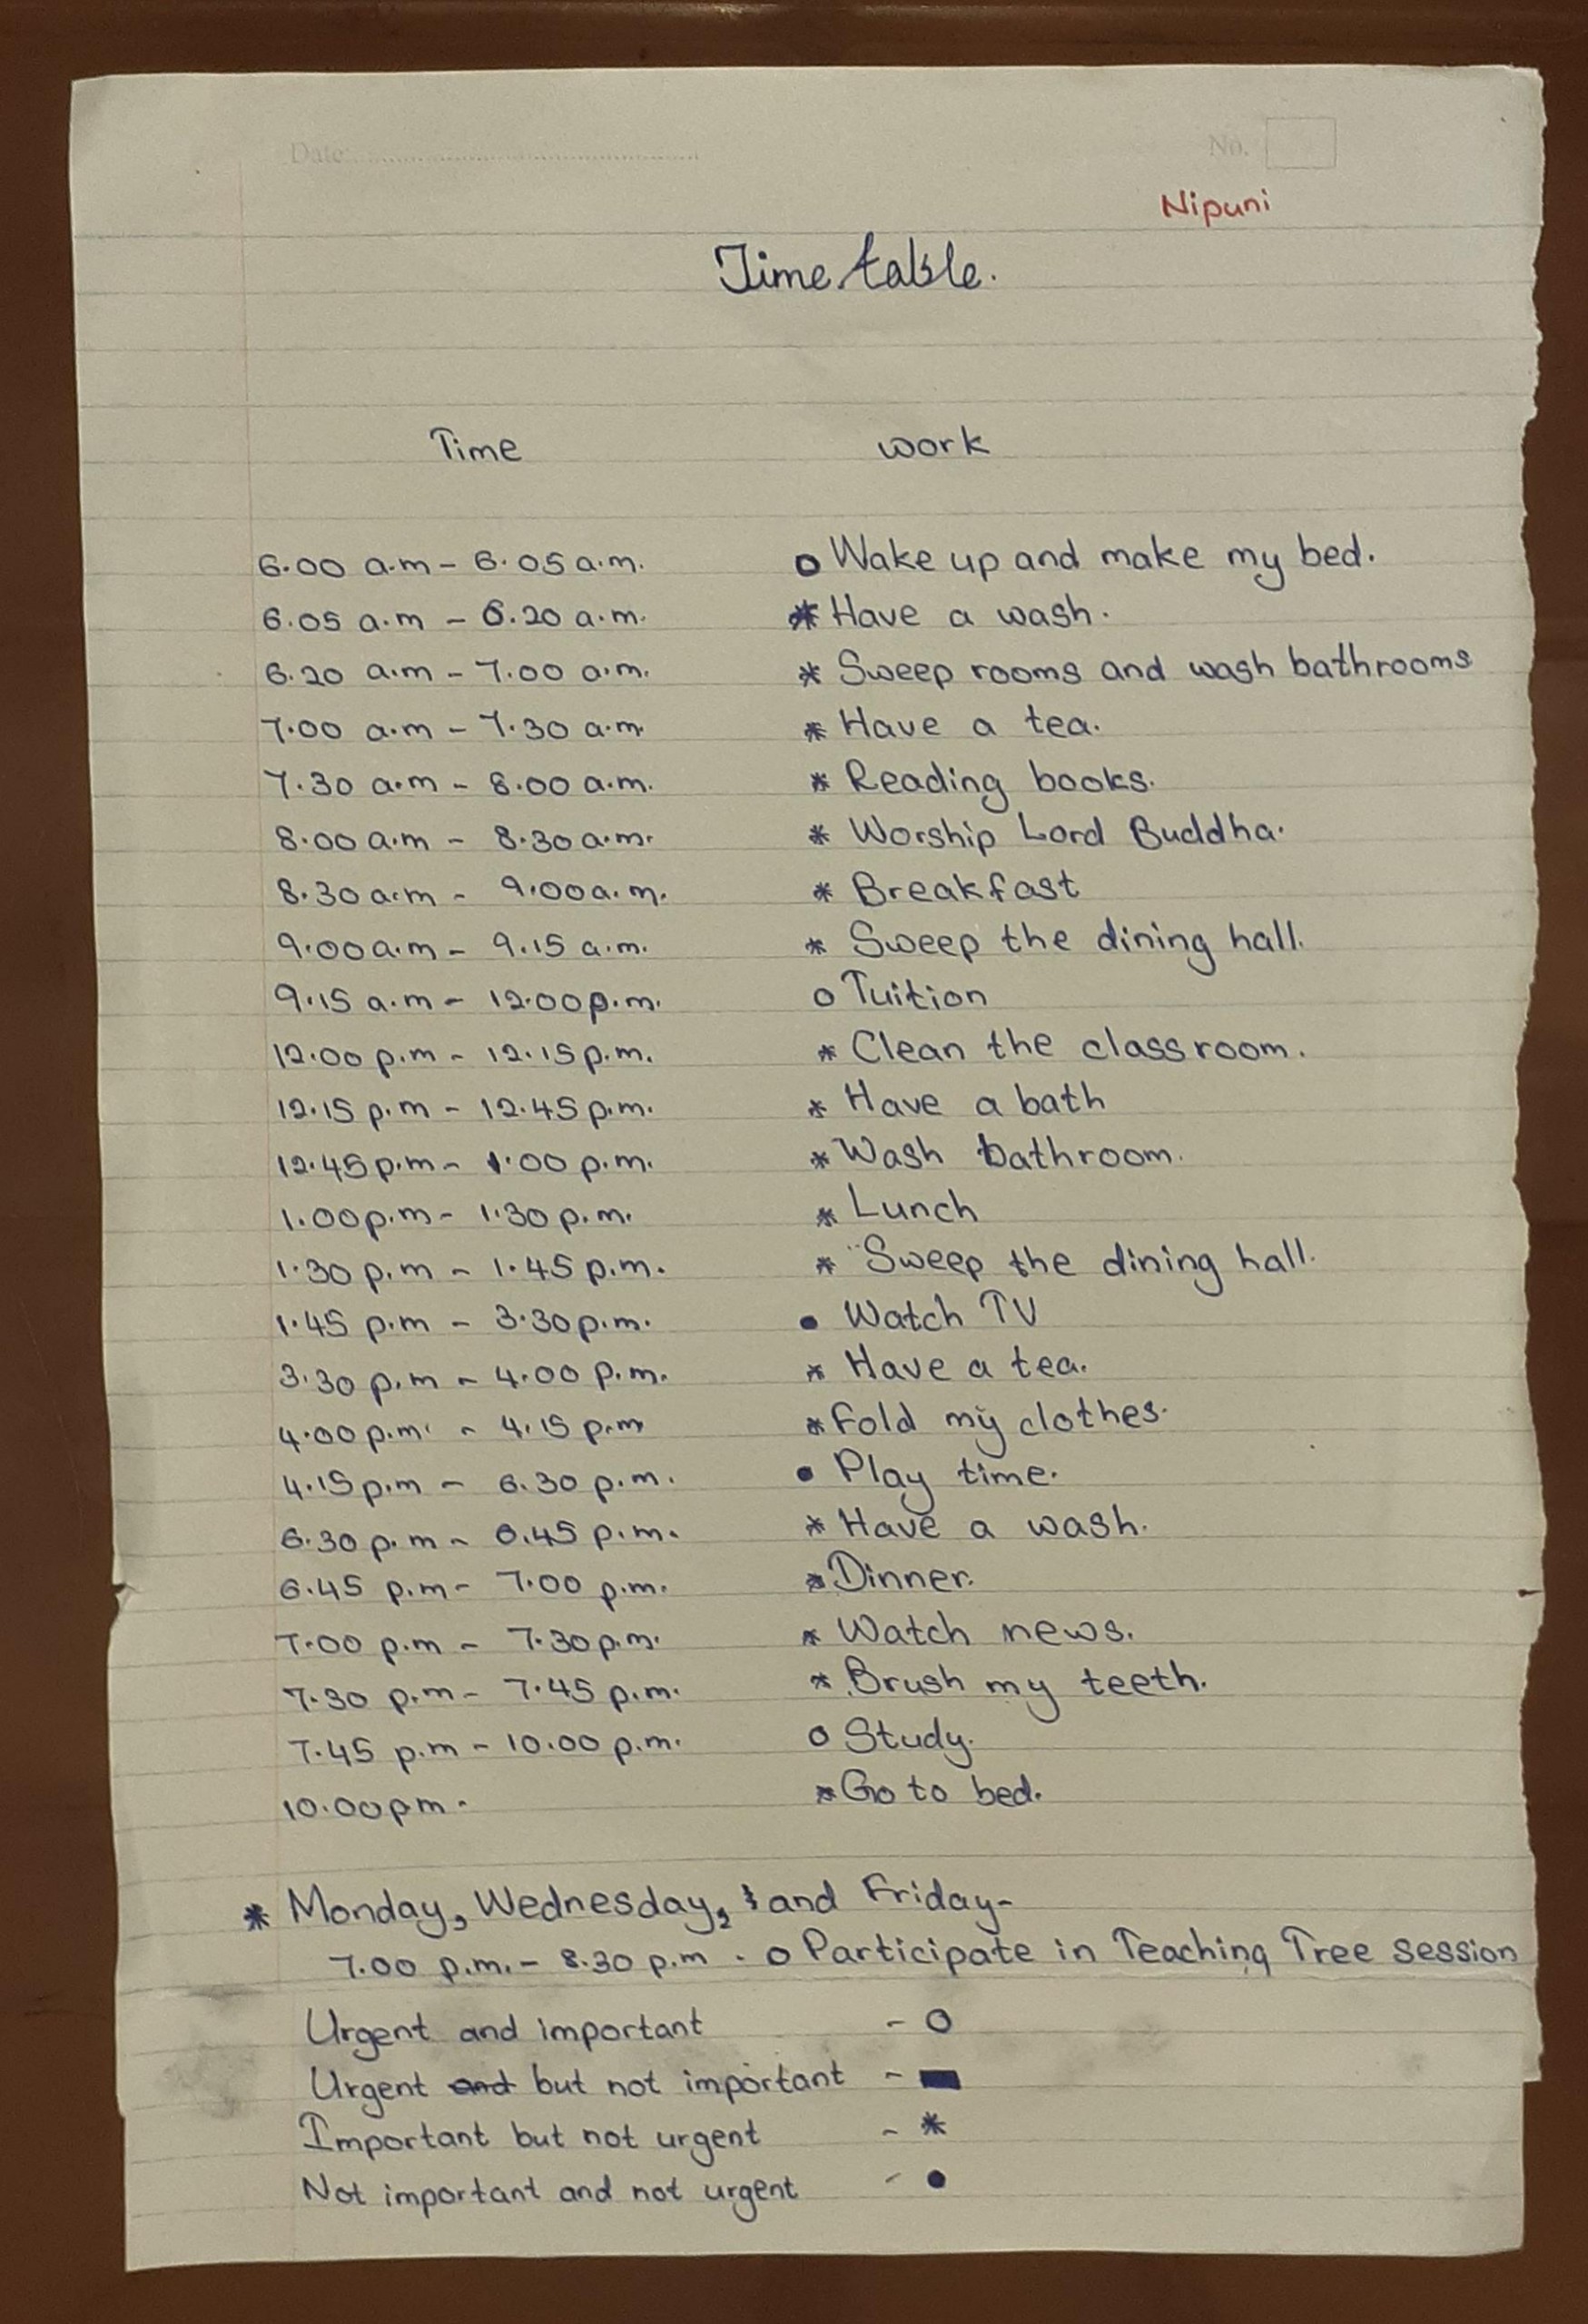 Date: ..................................................... No.
Nipuni
Time table.
Time work
6.00 a.m - 6.05 a.m. o Wake up and make my bed.
6.05 a.m - 6.20 a.m. * Have a wash.
6.20 a.m - 7.00 a.m. * Sweep rooms and wash bathrooms
7.00 a.m - 7.30 a.m. * Have a tea.
7.30 a.m - 8.00 a.m. * Reading books.
8.00 a.m - 8.30 a.m. * Worship Lord Buddha.
8.30 a.m - 9.00 a.m. * Breakfast
9.00 a.m - 9.15 a.m. * Sweep the dining hall.
9.15 a.m - 12.00 p.m. o Tuition
12.00 p.m - 12.15 p.m. * Clean the classroom.
12.15 p.m - 12.45 p.m. * Have a bath
12.45 p.m - 1.00 p.m. * Wash bathroom.
1.00 p.m - 1.30 p.m. * Lunch
1.30 p.m - 1.45 p.m. * Sweep the dining hall.
1.45 p.m - 3.30 p.m. • Watch TV
3.30 p.m - 4.00 p.m. * Have a tea.
4.00 p.m. - 4.15 p.m * Fold my clothes.
4.15 p.m - 6.30 p.m. • Play time.
6.30 p.m - 6.45 p.m. * Have a wash.
6.45 p.m - 7.00 p.m. * Dinner.
7.00 p.m - 7.30 p.m. * Watch news.
7.30 p.m - 7.45 p.m. * Brush my teeth.
7.45 p.m - 10.00 p.m. o Study.
10.00 pm. * Go to bed.
* Monday, Wednesday, and Friday -
7.00 p.m. - 8.30 p.m - o Participate in Teaching Tree session
Urgent and important - o
Urgent and but not important - ▬
Important but not urgent - *
Not important and not urgent - •